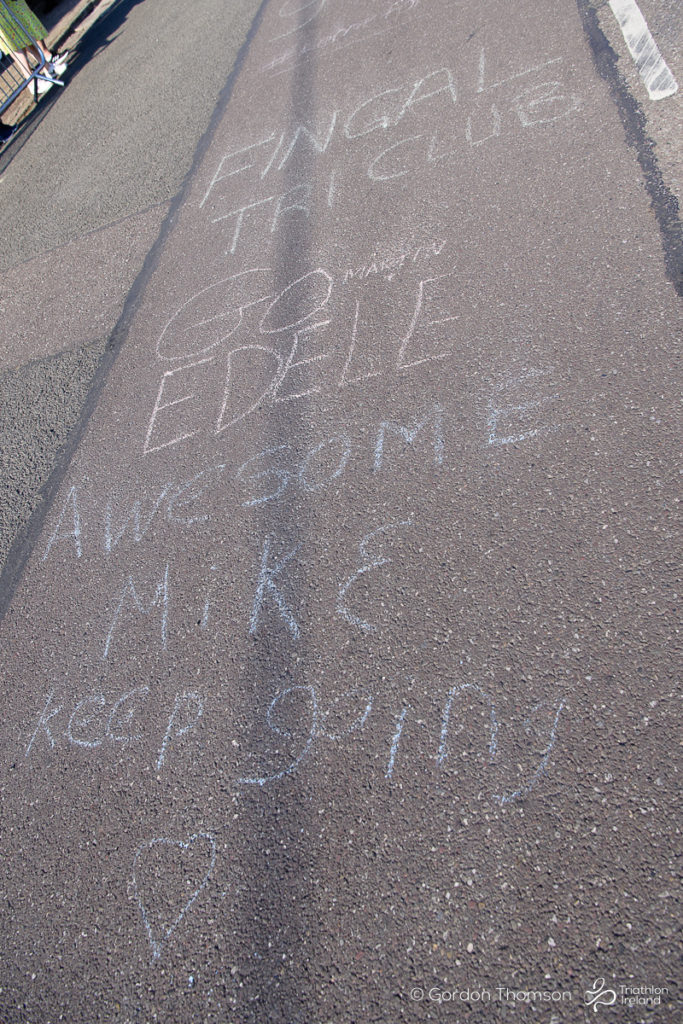 FINGAL
TRI CLUB
GO MARTIN
EDELE
AWESOME
MIKE
keep going
© Gordon Thomson
Triathlon
Ireland